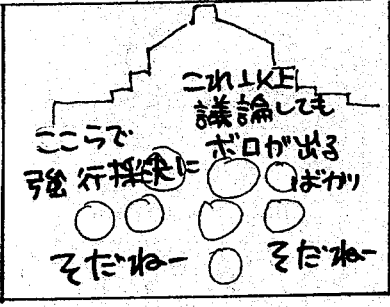 これ以上
議論しても
ボロが出る
ばかり
ここらで
強行採決に
そだねー
そだねー